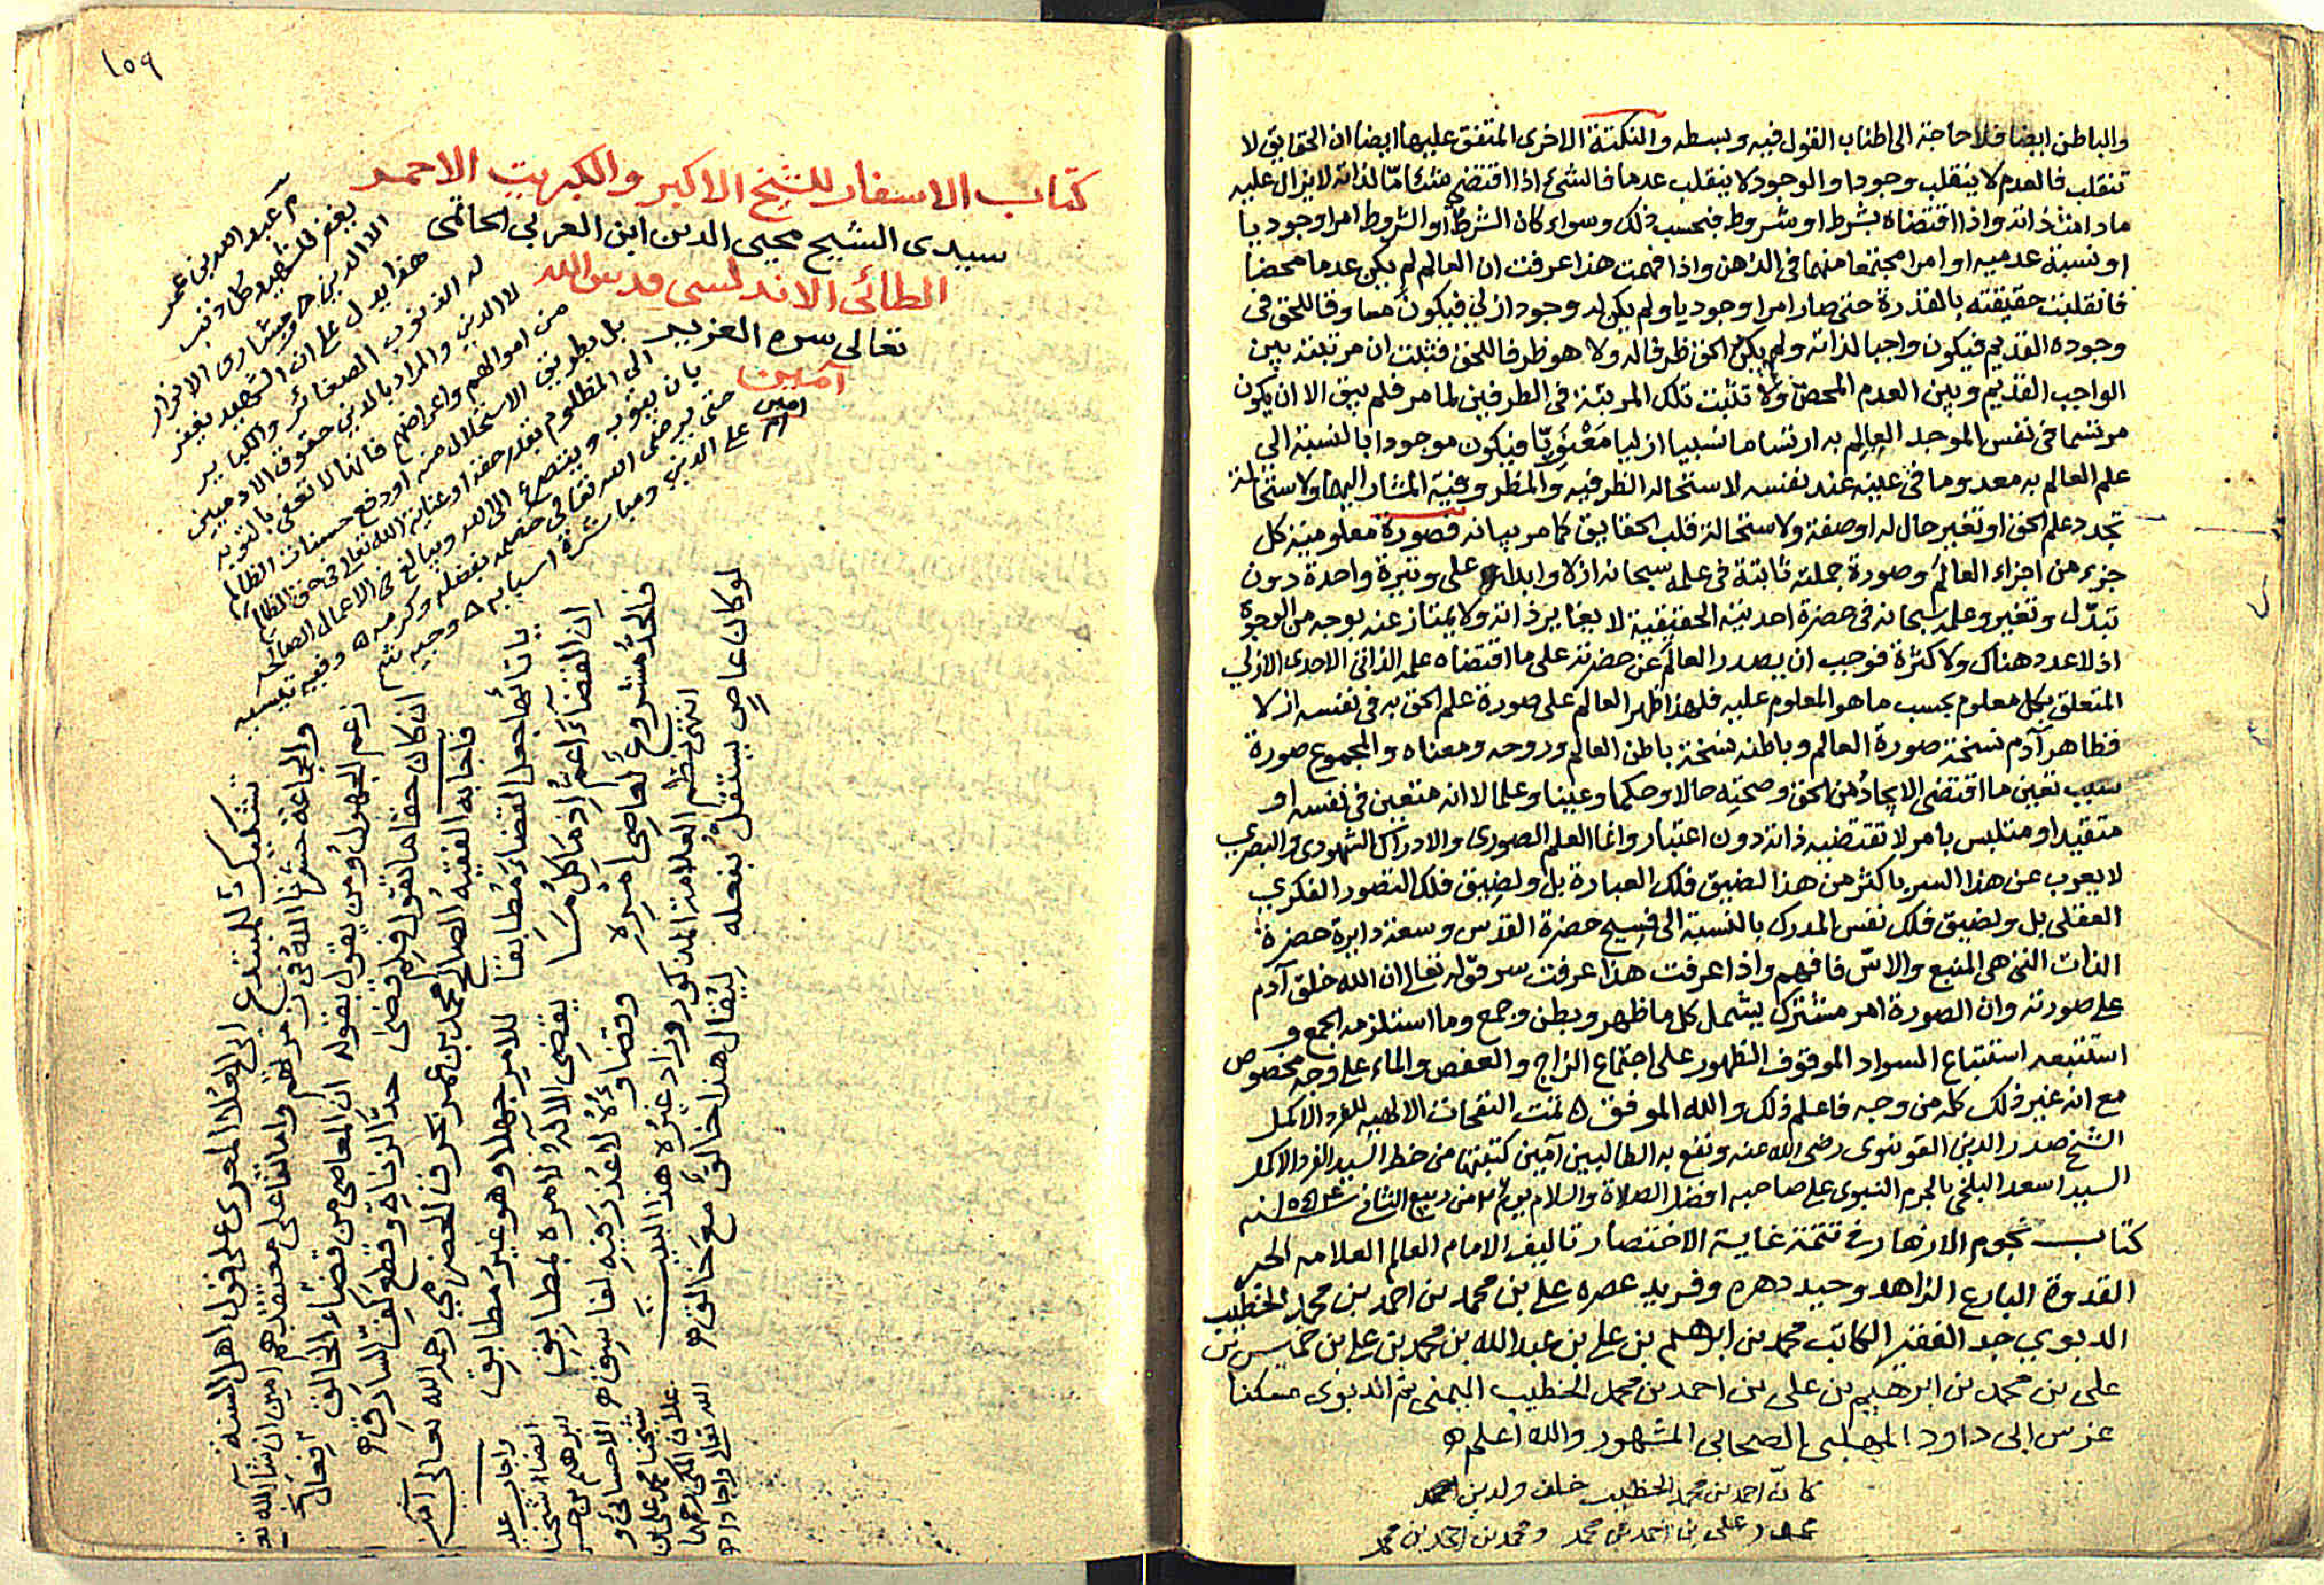 والباطن ايضا فلا حاجة الى اطناب القول فيه وبسطه والنكتة الاخرى المتفق عليها ايضا ان الحقايق لا
تنقلب فالعدم لا ينقلب وجودا والوجود لا ينقلب عدما فالشئ اذا اقتضى شئا مّا لذاته لا يزال عليه
مادامت ذاته واذا اقتضاه بشرط او شروط فبحسب ذلك وسواء كان الشرط او الشروط امرا وجوديا
او نسبة عدميه او امرا مجتمعا منهما فى الذهن واذا فهمت هذا عرفت ان العالم لم يكن عدما محضا
فانقلبت حقيقته بالقدرة حتى صار امرا وجوديا ولم يكن له وجود ازلي فيكون مساوقا للحق فى
وجوده القديم فيكون واجبا لذاته ولم يكن الحق ظرفا له ولا هو ظرفا للحق فثبت ان مرتبته بين
الواجب القديم وبين العدم المحض ولا تثبت تلك المرتبة فى الطرفين لما مر فلم يبق الا ان يكون
مرتسما فى نفس الموجد العالم به ارتساما نسبيا ازليا مَعْنَوِيّا فيكون موجودا بالنسبة الى
علم العالم به معدوما فى عينه عند نفسه لاستحالة الظرفيه والمظروفية المشار اليها ولاستحالة
تجدد علم الحق او تغير حال له او صفة ولاستحالة قلب الحقايق كما مر بيانه فصورة معلومية كل
جزء من اجزاء العالم وصورة جملته ثابتة فى علمه سبحانه ازلا وابدا على وتيرة واحدة دون
تبدّل وتغير وعلمه سبحانه فى حضرة احديته الحقيقية لا يغاير ذاته ولا يمتاز عنه بوجه من الوجوه
اذ لا عدد هناك ولا كثرة فوجب ان يصدر العالم عن حضرته على ما اقتضاه علمه الذاتى الاحدى الازلي
المتعلق بكل معلوم بحسب ما هو المعلوم عليه فلهذا ظهر العالم على صورة علم الحق به فى نفسه ازلا
فظاهر آدم نسخة صورة العالم وباطنه نسخة باطن العالم وروحه ومعناه والمجموع صورة
سبب تعين ما اقتضى الايجاد من الحق وصحته حالا وحكما وعينا وعلما لا انه متعين فى نفسه او
متقيد او متلبس بامر لا تقتضيه ذاته دون اعتبار وانما العلم الصورى والادراك الشهودى والبصري
لا يعرب عن هذا السر باكثر من هذا لضيق فلك العبارة بل ولضيق فلك التصور الفكري
العقلى بل ولضيق فلك نفس المدرك بالنسبة الى فسيح حضرة القدس وسعة دايرة حضرة
الذات التى هى المنبع والاسّ فافهم واذا عرفت هذا عرفت سر قوله تعالى ان الله خلق آدم
على صورته وان الصورة امر مشترك يشمل كل ما ظهر وبطن وجمع وما استلزمه الجمع و
استتبعه استتباع السواد الموقوف الظهور على اجتماع الزاج والعفص والماء على وجه مخصوص
مع انه غير ذلك كله من وجه فاعلم ذلك والله الموفق ه تمت النفحات الالهيه للفرد الاكمل
الشيخ صدر الدين القونوى رضى الله عنه ونفع به الطالبين آمين كتبتها من خط السيد الفرد الاكمل
السيد اسعد البلخى بالحرم النبوى على صاحبه افضل الصلاة والسلام يوم من ربيع الثانى سنه
كتاب نجوم الازهار فى تتمة غاية الاختصار تاليف الامام العالم العلامه الحبر
القدوة البارع الزاهد وحيد دهره وفريد عصره على بن محمد بن احمد بن محمد الخطيب
الدبوي جد الفقيه الكاتب محمد بن ابراهيم بن على بن عبد الله بن محمد بن على بن خميس بن
على بن محمد بن ابرهيم بن على بن احمد بن محمد الخطيب اليمنى ثم الدبوى مسكنا
عزس ابى داود المهلبى الصحابى المشهور والله اعلم ه
كان احمد بن محمد الخطيب خلف ولدين
على بن احمد بن محمد ومحمد بن احمد بن محمد
١٥٩
كتاب الاسفار للشيخ الاكبر والكبريت الاحمر
سيدى الشيخ محيى الدين ابن العربى الحاتمى
الطائى الاندلسى قدس الله
تعالى سره العزيز
آمين
امين
م عبد الله بن عمر
يغفر للشهيد كل ذنب
الا الدين
هذا يدل على ان الشهيد يغفر
له الذنوب الصغائر والكباير
لا الدين والمراد بالدين حقوق الادميين
من اموالهم واعراضهم فانها لا تعفى بالتوبه
بل بطريق الاستحلال منه او دفع حسنات الظالم
الى المظلوم بقدر حقه او عناية الله تعالى فى حق الظالم
بان يتوب ويتضرع الى الله ويبالغ فى الاعمال الصالحه
حتى يرضى الله تعالى خصمه بفضله وكرمه ه وفيه
على الدين ومباشرة اسبابه
تشكيك للمبتدع ابى العلا المعرى على قول اهل السنة
والجماعة حشرنا الله فى زمرتهم واماتنا على معتقدهم امين ان شا الله
زعم الجهول ومن يقول بقوله ان المعاصى من قضاء الخالق
ان كان حقا ما تقول فلم قضى حدّ الزناة وقطع كفّ السارق ه
فاجابه الفقيه الصالح محمد بن عمر بحرق الحضرمي رحمه الله تعالى
يا تائها جعل القضاء مطابقا للامر جهلا وهو غير مطابق
ان القضاء اعم اذ ما كل ما يقضى الاله لامره بمطابق
فالحدّ مشروع لعاصى امره وقضاؤه لا عذر فيه لفاسق ه
انتهى نظم العلامة المذكور وزاد غيره هذا البيت
لو كان عاص يستقل بفعله ليقال هذا خالق مع خالق ه
واجاب عليه
ايضا شيخنا
ابرهيم بن حسن
الاحسائى و
شيخنا محمد على بن
علان المكى رحمهما
الله تعالى واجادا ه